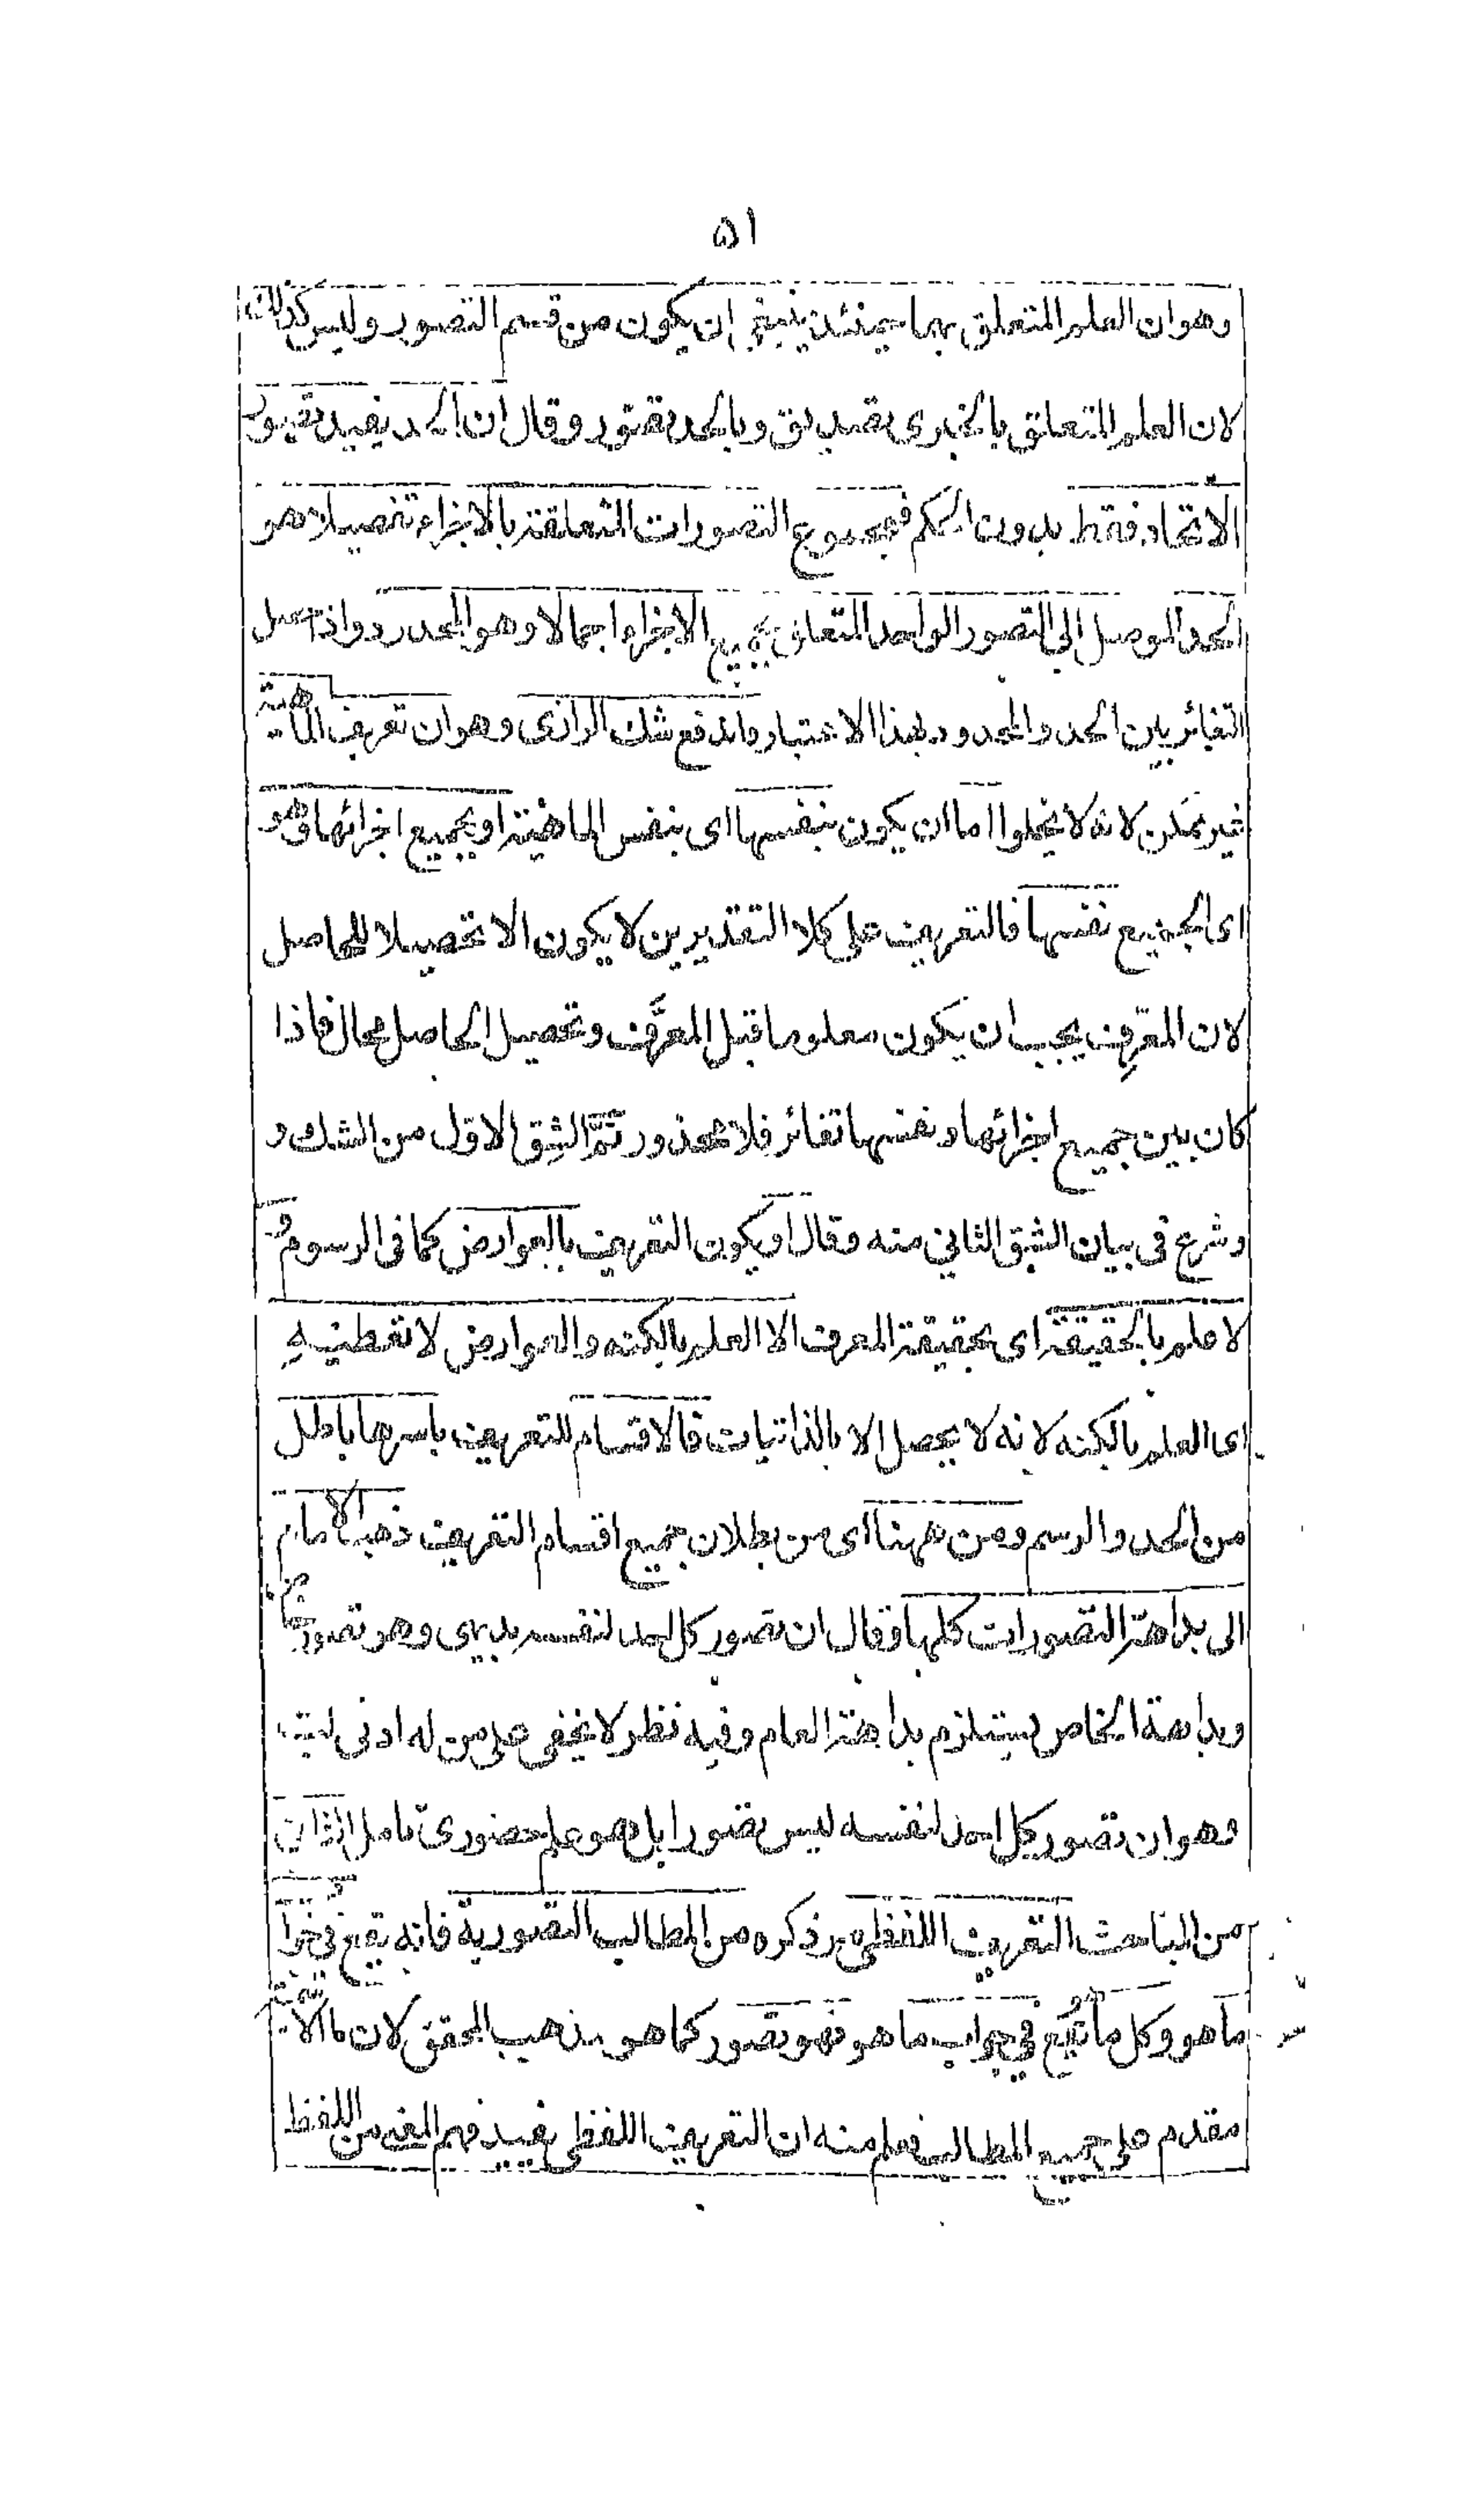 ٥١
وهو ان العلم المتعلق بهما حينئذ ينبغي ان يكون من قسم التصور وليس كذلك
لان العلم المتعلق بالخبرى تصديق وبالحد تصور وقال ان الحد يفيد تصور
الاتحاد فقط بدون الحكم فمجموع التصورات المتعلقة بالاجزاء تفصيلا هو
الحد الموصل الى التصور الواحد المتعلق بجميع الاجزاء اجمالا وهو المحدود واذا حصل
التغائر بين الحد والمحدود بهذا الاعتبار واندفع شك الرازى وهو ان تعريف الماهية
غير ممكن لانه لا يخلوا اما ان يكون بنفسها اى بنفس الماهية او بجميع اجزائها وهو
اى الجميع نفسها فالتعريف على كلا التقديرين لا يكون الا تحصيلا للحاصل
لان المعرِّف يجب ان يكون معلوما قبل المعرَّف وتحصيل الحاصل محال فاذا
كان بين جميع اجزائها ونفسها تغائر فلا محذور تمّ الشق الاول من الشك و
وشرع فى بيان الشق الثانى منه وقال او يكون التعريف بالعوارض كما فى الرسوم و
لا علم بالحقيقة اى بحقيقة المعرف الا العلم بالكنه والعوارض لا تعطيه
اى العلم بالكنه لانه لا يحصل الا بالذاتيات فالاقسام للتعريف باسرها باطل
من الحد والرسم ومن ههنا اى من بطلان جميع اقسام التعريف ذهب الامام
الى بداهة التصورات كلها وقال ان تصور كل احد لنفسه بديهى وهو تصور خاص
وبداهة الخاص يستلزم بداهة العام وفيه نظر لا يخفى على من له ادنى
وهو ان تصور كل احد لنفسه ليس تصورا بل هو علم حضورى تامل الثانى
من المباحث التعريف اللفظى مر ذكره من المطالب التصورية فانه يقع فى جواب
ما هو وكل ما يقع فى جواب ما هو فهو تصور كما هو مذهب المحقق لان ما
مقدم على جميع المطالب فعلم منه ان التعريف اللفظى يفيد فهم المعنى من اللفظ